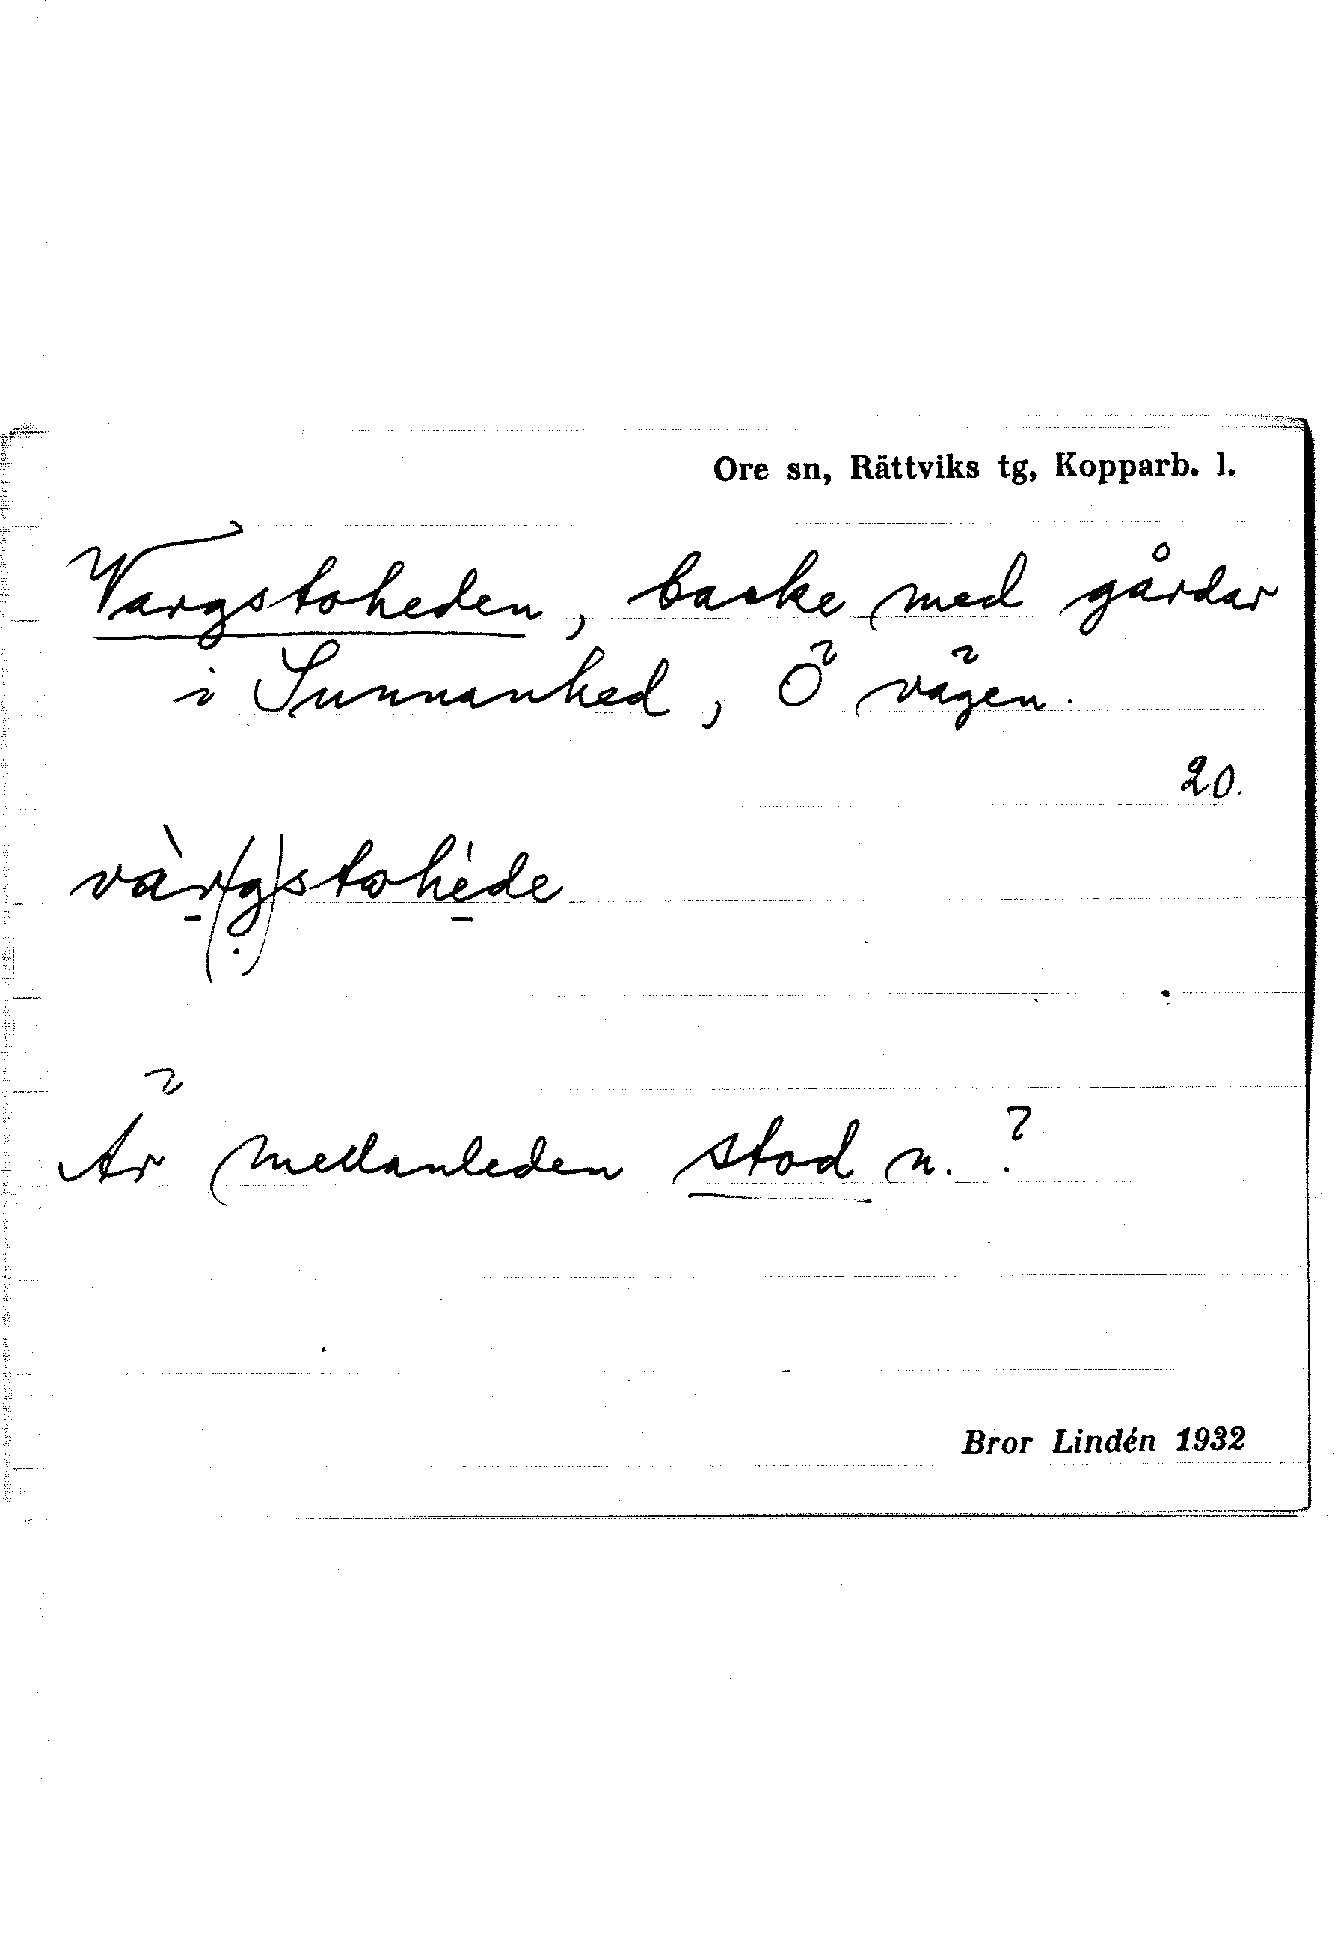 Ore sn, Rättviks tg, Kopparb. l.
Vargstoheden, backe med gårdar
i Sunnanhed, Ö vägen.
20.
vàr(g)stohéde
Är mellanleden stod n.?
Bror Lindén 1932